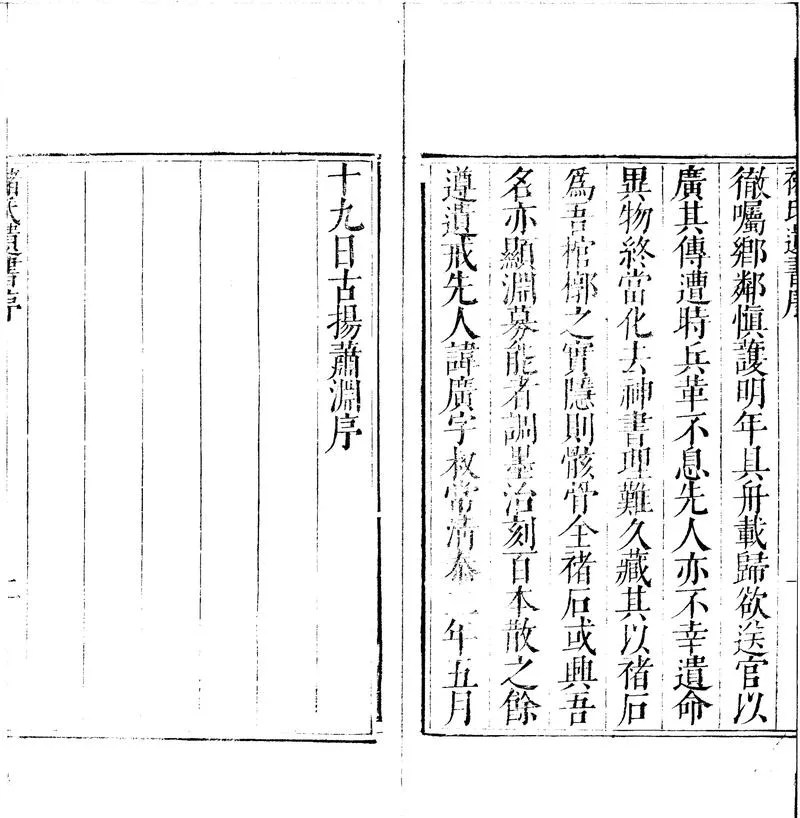 褚氏遺書序
徹囑鄉鄰慎護明年具舟載歸欲送官以
廣其傳遭時兵革不息先人亦不幸遺命
異物終當化去神書理難久藏其以褚石
爲吾棺槨之實隱則骸骨全褚石或興吾
名亦顯淵募能者調墨治刻百本散之餘
遵遺戒先人諱廣字叔常清泰二年五月
十九日古揚蕭淵序
褚氏遺書序
二